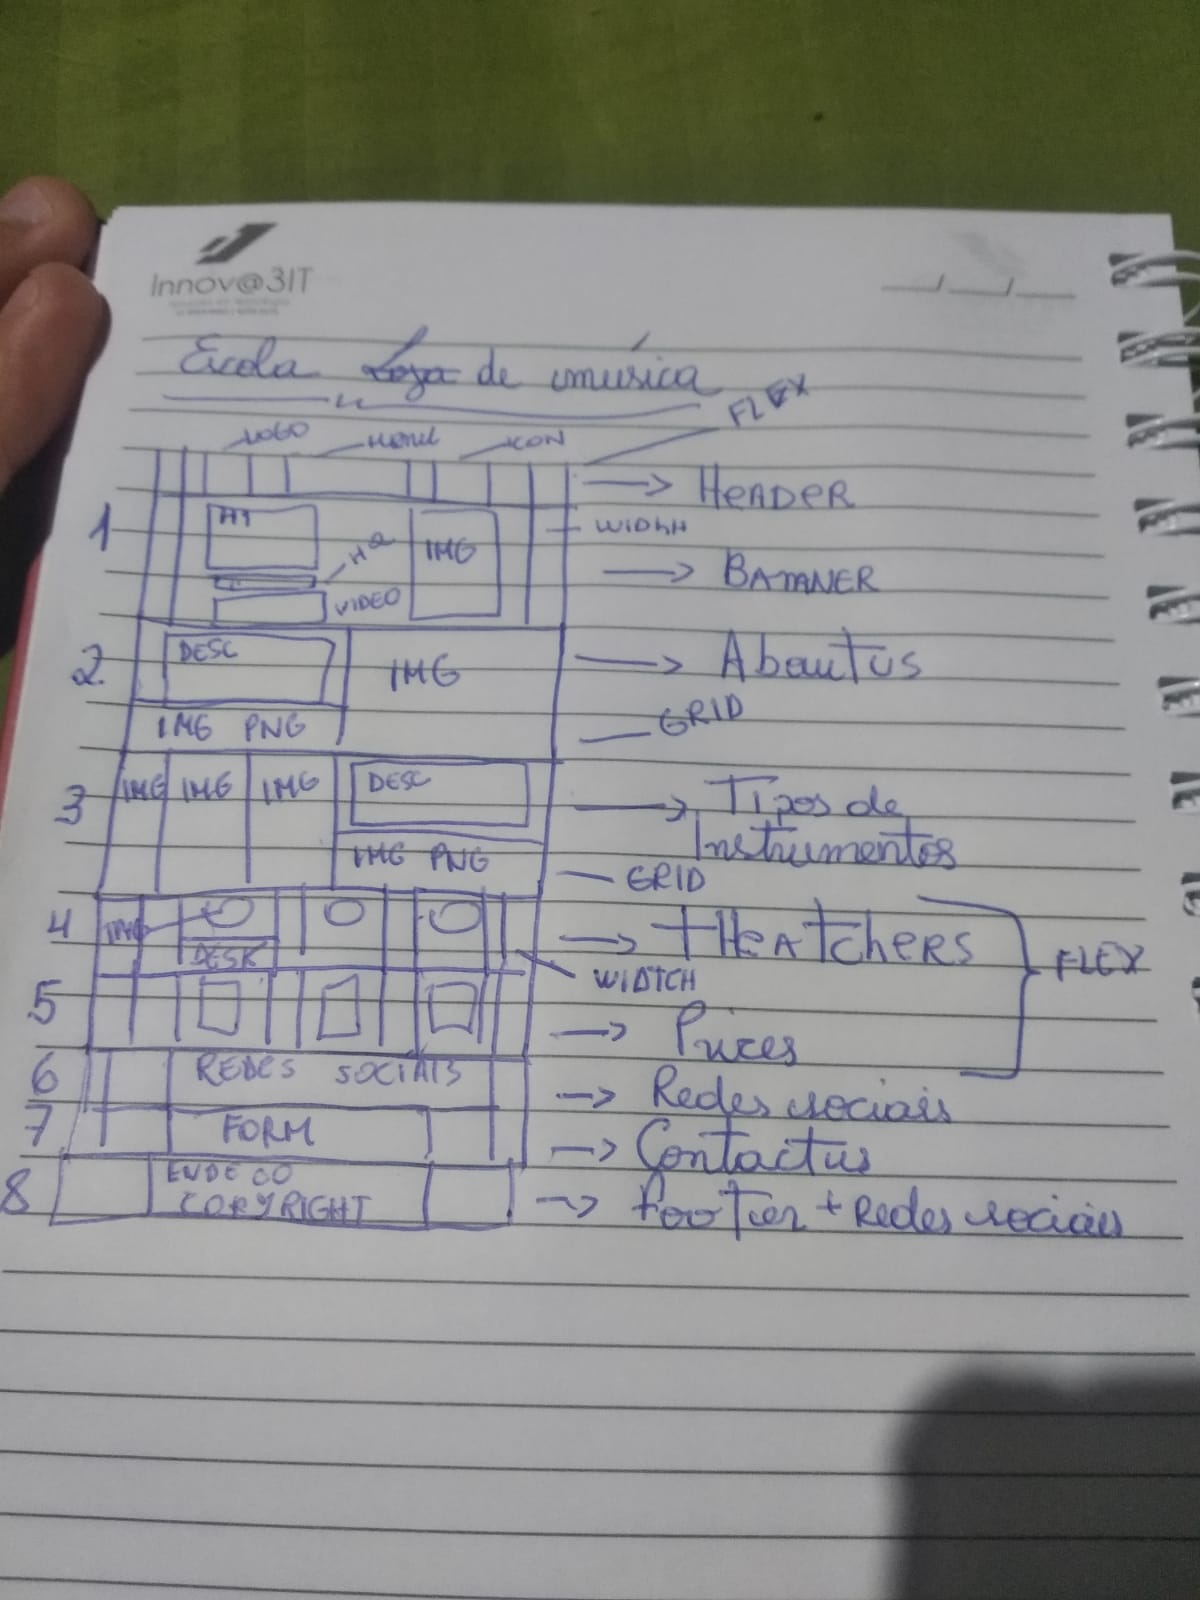 Innov@3IT
Escola Loja de música
LOGO MENU ICON FLEX
HEADER
1 H1 IMG WIDHH
H2
VIDEO BANNER
2 DESC IMG AboutUs
IMG PNG GRID
3 IMG IMG IMG DESC Tipos de
Instrumentos
IMG PNG GRID
4 IMG tHeatchers FLEX
DESK WIDTCH
5 Prices
6 REDES SOCIAIS Redes sociais
7 FORM Contactus
8 ENDECO
COPYRIGHT footer + Redes sociais